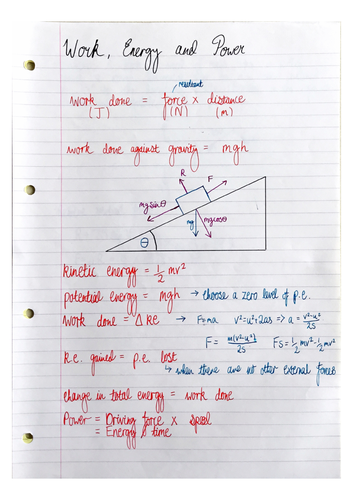 Work, Energy and Power
resultant
work done = force x distance
(J) (N) (m)
work done against gravity = mgh
R F
mgsinθ
mg mgcosθ
θ
kinetic energy = 1/2 mv²
potential energy = mgh → choose a zero level of p.e.
work done = Δke → F=ma v²=u²+2as => a = v²-u²/2s
F = m(v²-u²)/2s Fs = 1/2 mv² - 1/2 mv²
k.e. gained = p.e. lost
↳ when there are no other external forces
change in total energy = work done
Power = Driving force x speed
= Energy time